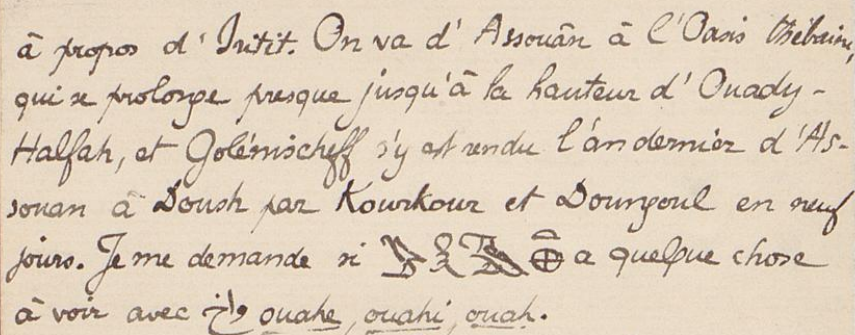 à propos d'Iritit. On va d'Assouân à l'Oasis Thébaine,
qui se prolonge presque jusqu'à la hauteur d'Ouady-
Halfah, et Golénischeff s'y est rendu l'an dernier d'As-
souan à Doush par Kourkour et Doungoul en neuf
jours. Je me demande si a quelque chose
à voir avec ouahe, ouahi, ouah.